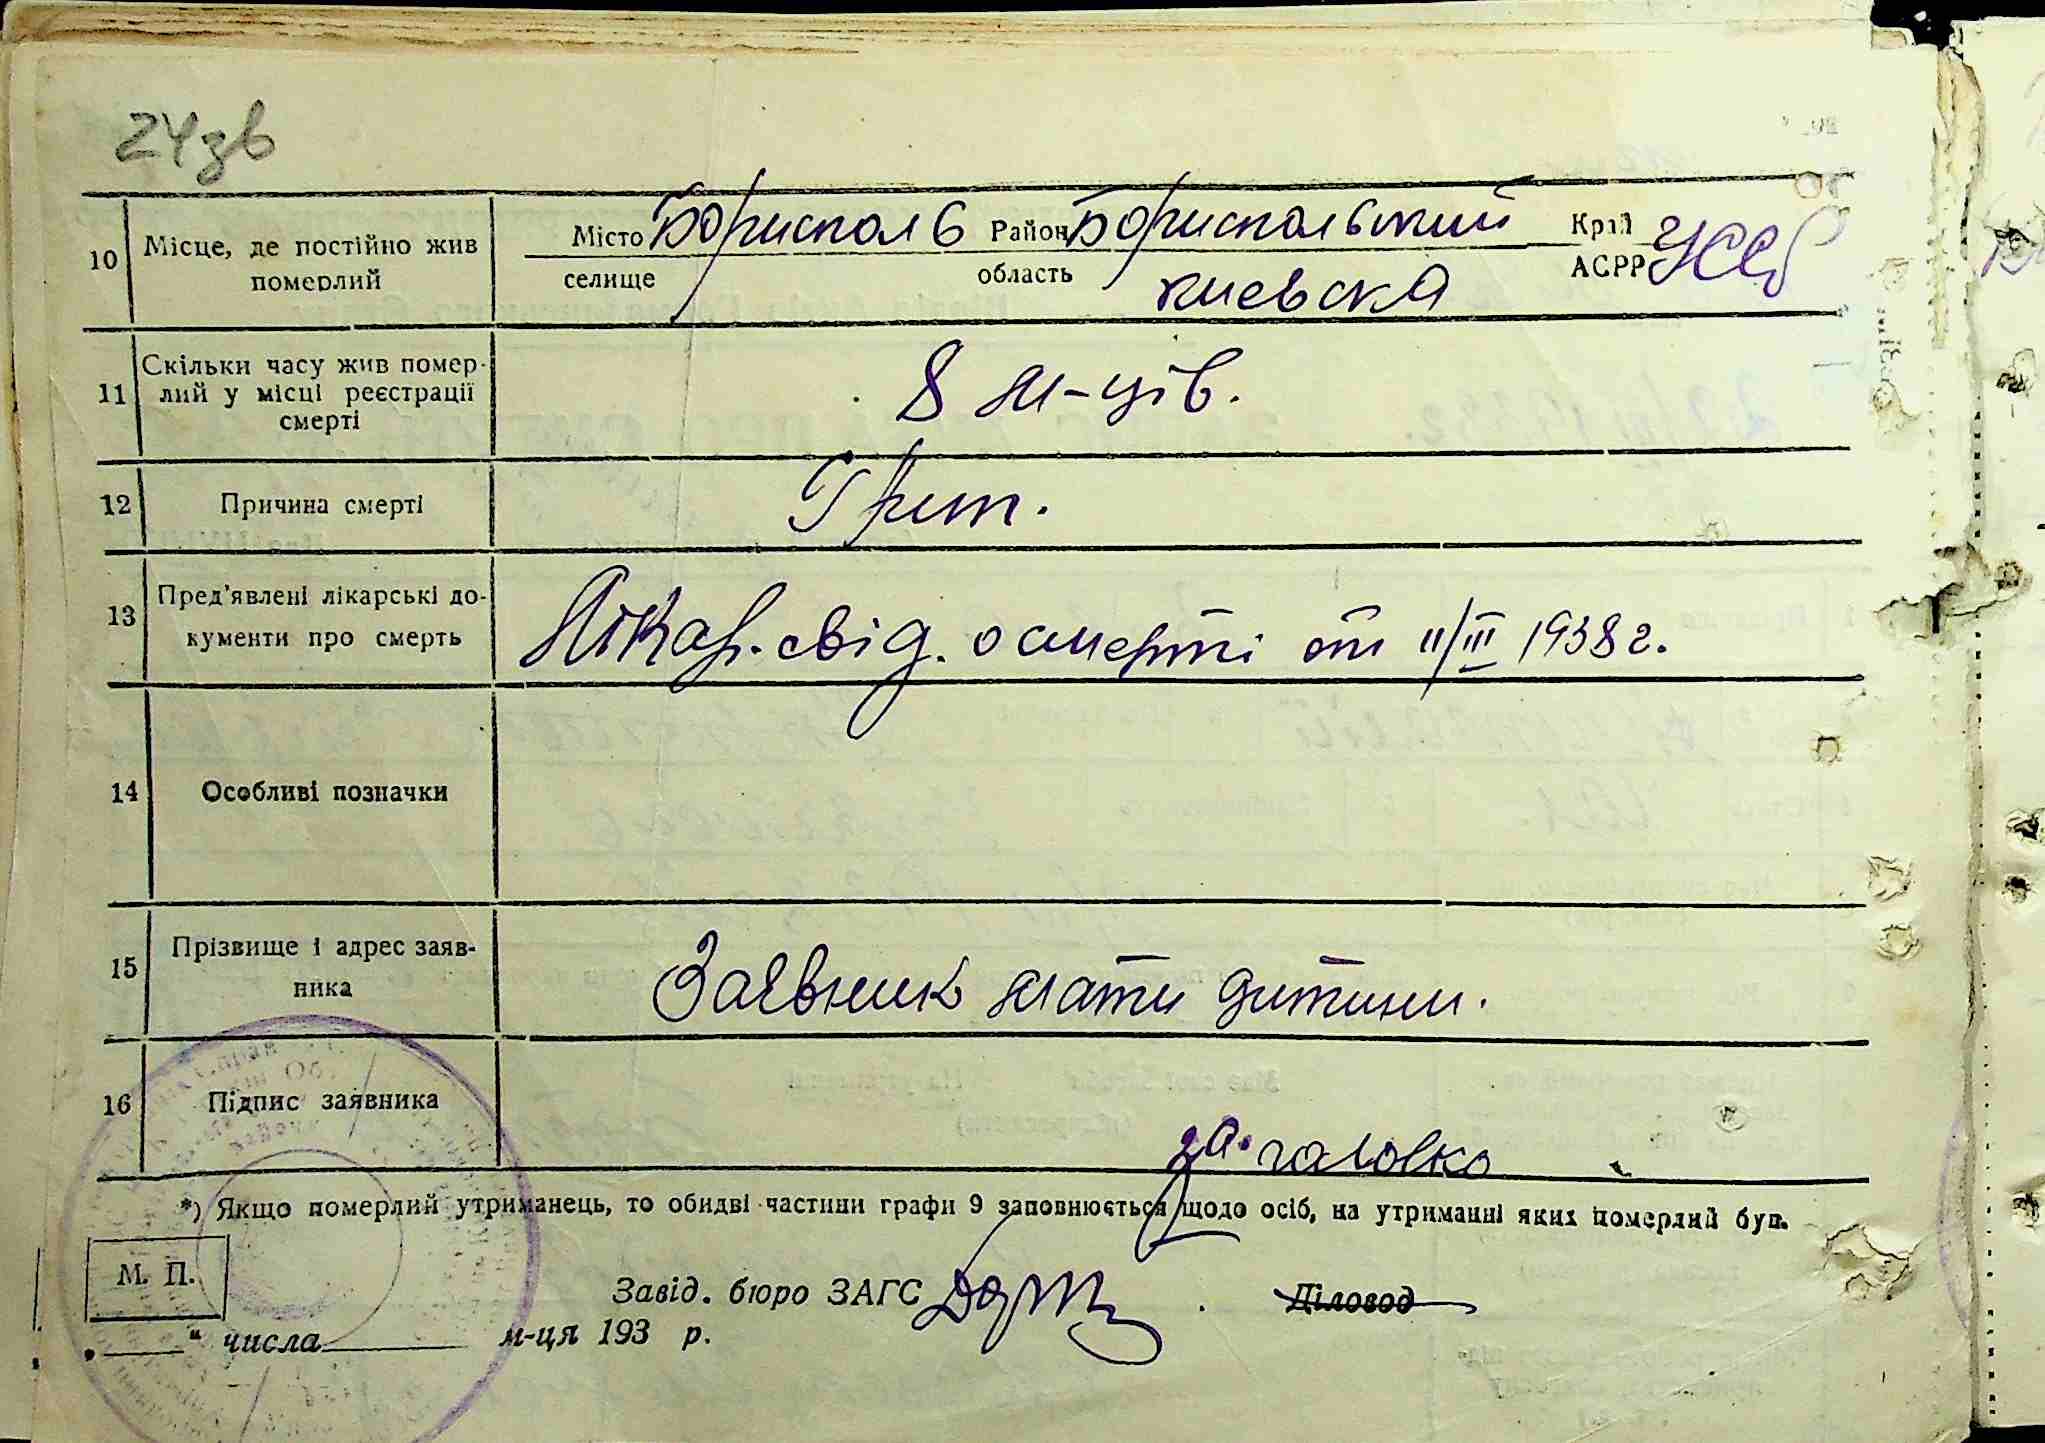 24зв
10 Місце, де постійно жив померлий Місто Борисполь Район Бориспольский Край УССР
селище область киевска АСРР
11 Скільки часу жив помер-
лий у місці реєстрації
смерті
8 м-ців.
12 Причина смерті Грип.
13 Пред'явлені лікарські до-
кументи про смерть
Лікар. свід. о смерті от 11/III 1938 г.
14 Особливі позначки
15 Прізвище і адрес заяв-
ника
Заявник мати дитини.
16 Підпис заявника
за. головко
*) Якщо померлий утриманець, то обидві частини графи 9 заповнюється щодо осіб, на утриманні яких померлий був.
М. П.
Завід. бюро ЗАГС Діловод
„ “ числа м-ця 193 р.